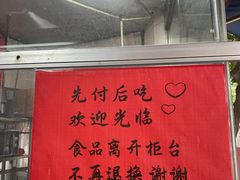 先付后吃
欢迎光临
食品离开柜台
不再退换谢谢